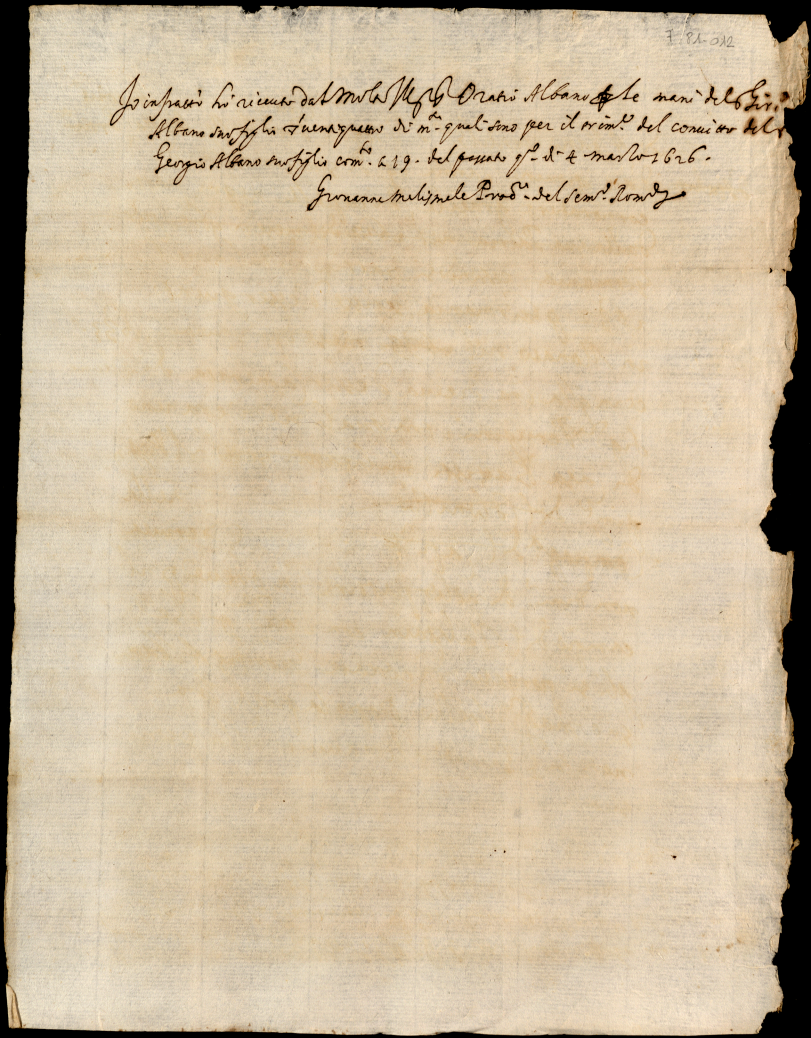 7.81.012
Io infratto hò riceuuto dal Molto Oratio Albano le mani del
Albano suo figlio uenti quatro di m.ta quali sono per il trim.e del conuitto del
Georgio Albano suo figlio com.to a 19. del passato q.o dì 4 marzo 1626.
Giouanne del Sem.o Rom.o